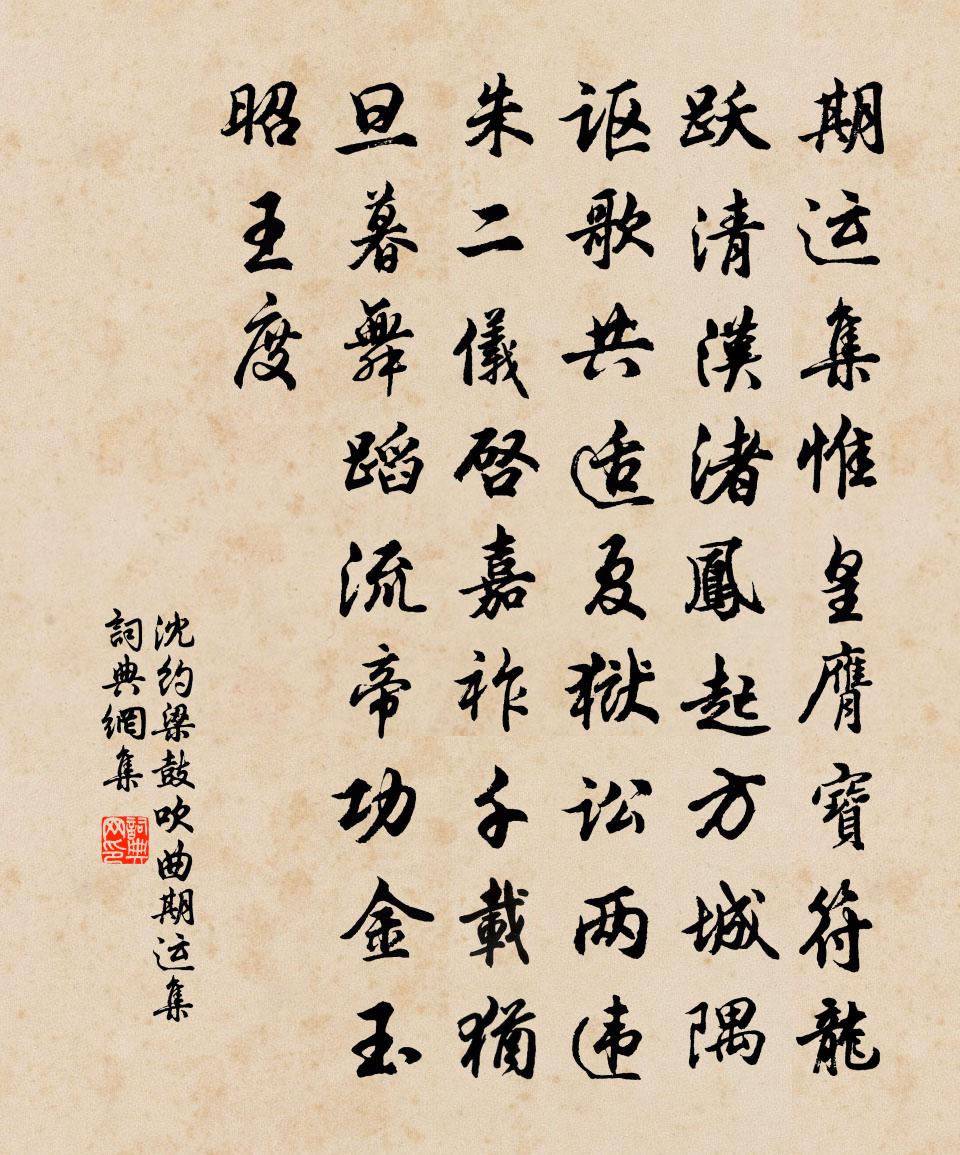 期运集惟皇膺寶符龍
跃清漢渚鳳起方城隅
讴歌共适夏獄讼两违
朱二儀启嘉祚千載猶
旦暮舞蹈流帝功金玉
昭王度
沈约梁鼓吹曲期运集
詞典網集
詞典網印